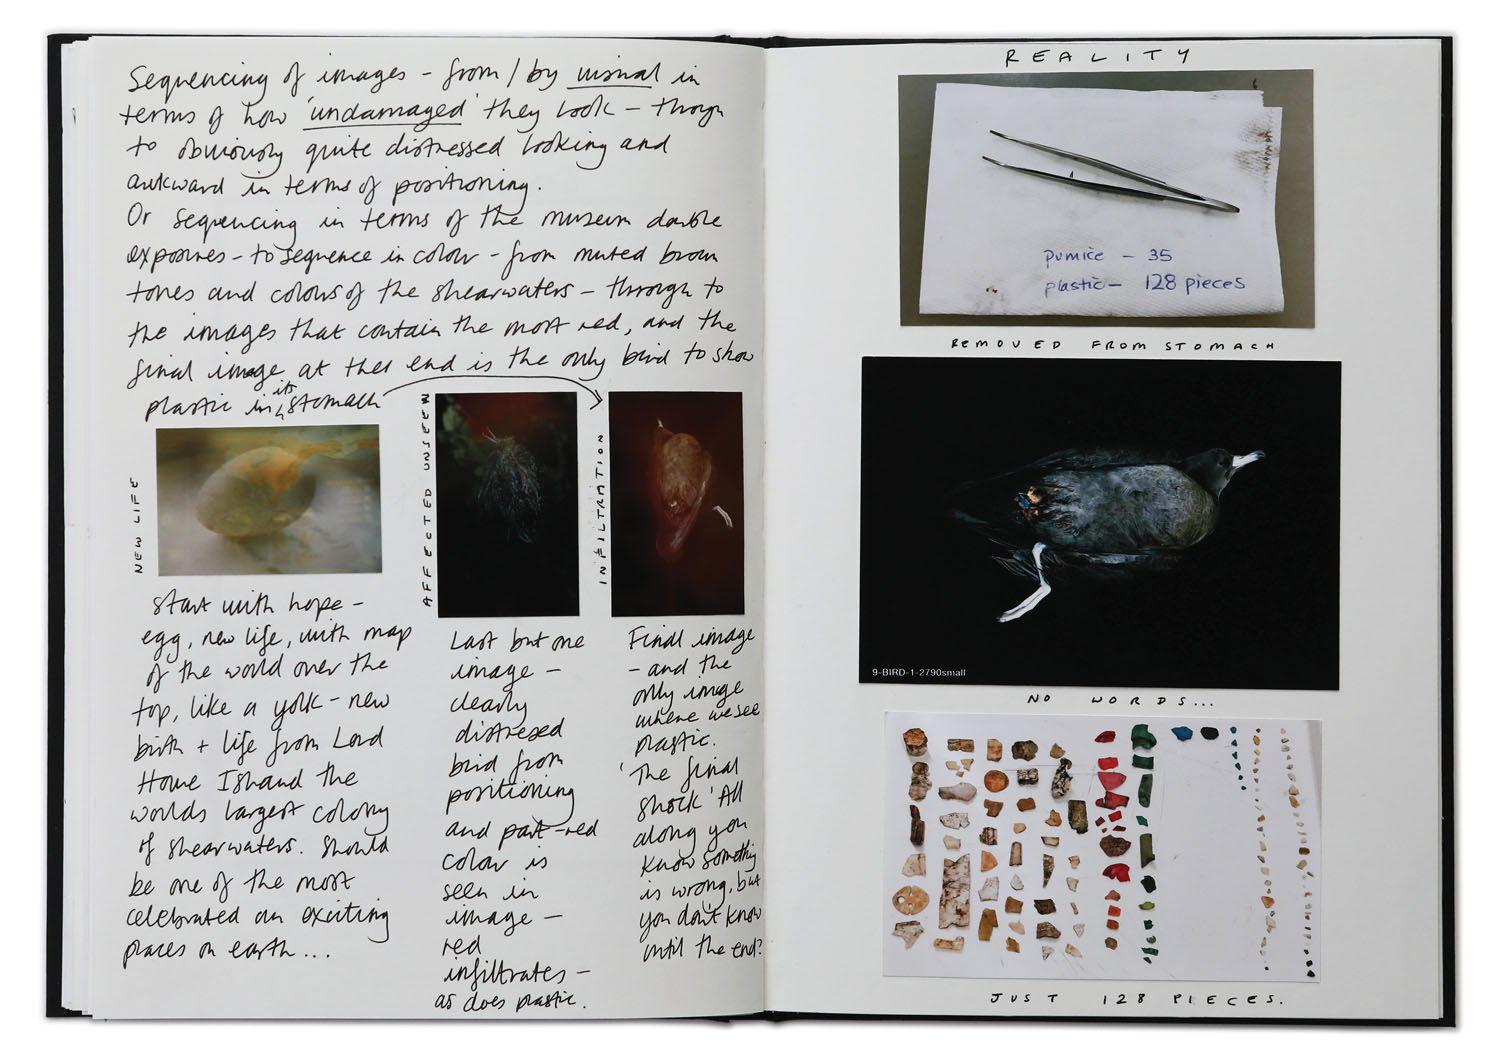 Sequencing of images - from / by visual in
terms of how 'undamaged' they look - though
to obviously quite distressed looking and
awkward in terms of positioning.
Or sequencing in terms of the museum double
exposures - to sequence in colour - from muted brown
tones and colours of the shearwaters - through to
the images that contain the most red, and the
final image at the end is the only bird to show
plastic in its stomach
NEW LIFE
AFFECTED UNSEEN
INFILTRATION
Start with hope -
egg, new life, with map
of the world over the
top, like a yolk - new
birth + life from Lord
Howe Island the
worlds largest colony
of shearwaters. Should
be one of the most
celebrated an exciting
places on earth...
Last but one
image -
clearly
distressed
bird from
positioning
and part-red
colour is
seen in
image -
red
infiltrates -
as does plastic.
Final image
- and the
only image
where we see
plastic.
'The final
shock' All
along you
know something
is wrong, but
you don't know
until the end?
REALITY
pumice - 35
plastic - 128 pieces
REMOVED FROM STOMACH
9-BIRD-1-2790small
NO WORDS...
JUST 128 PIECES.